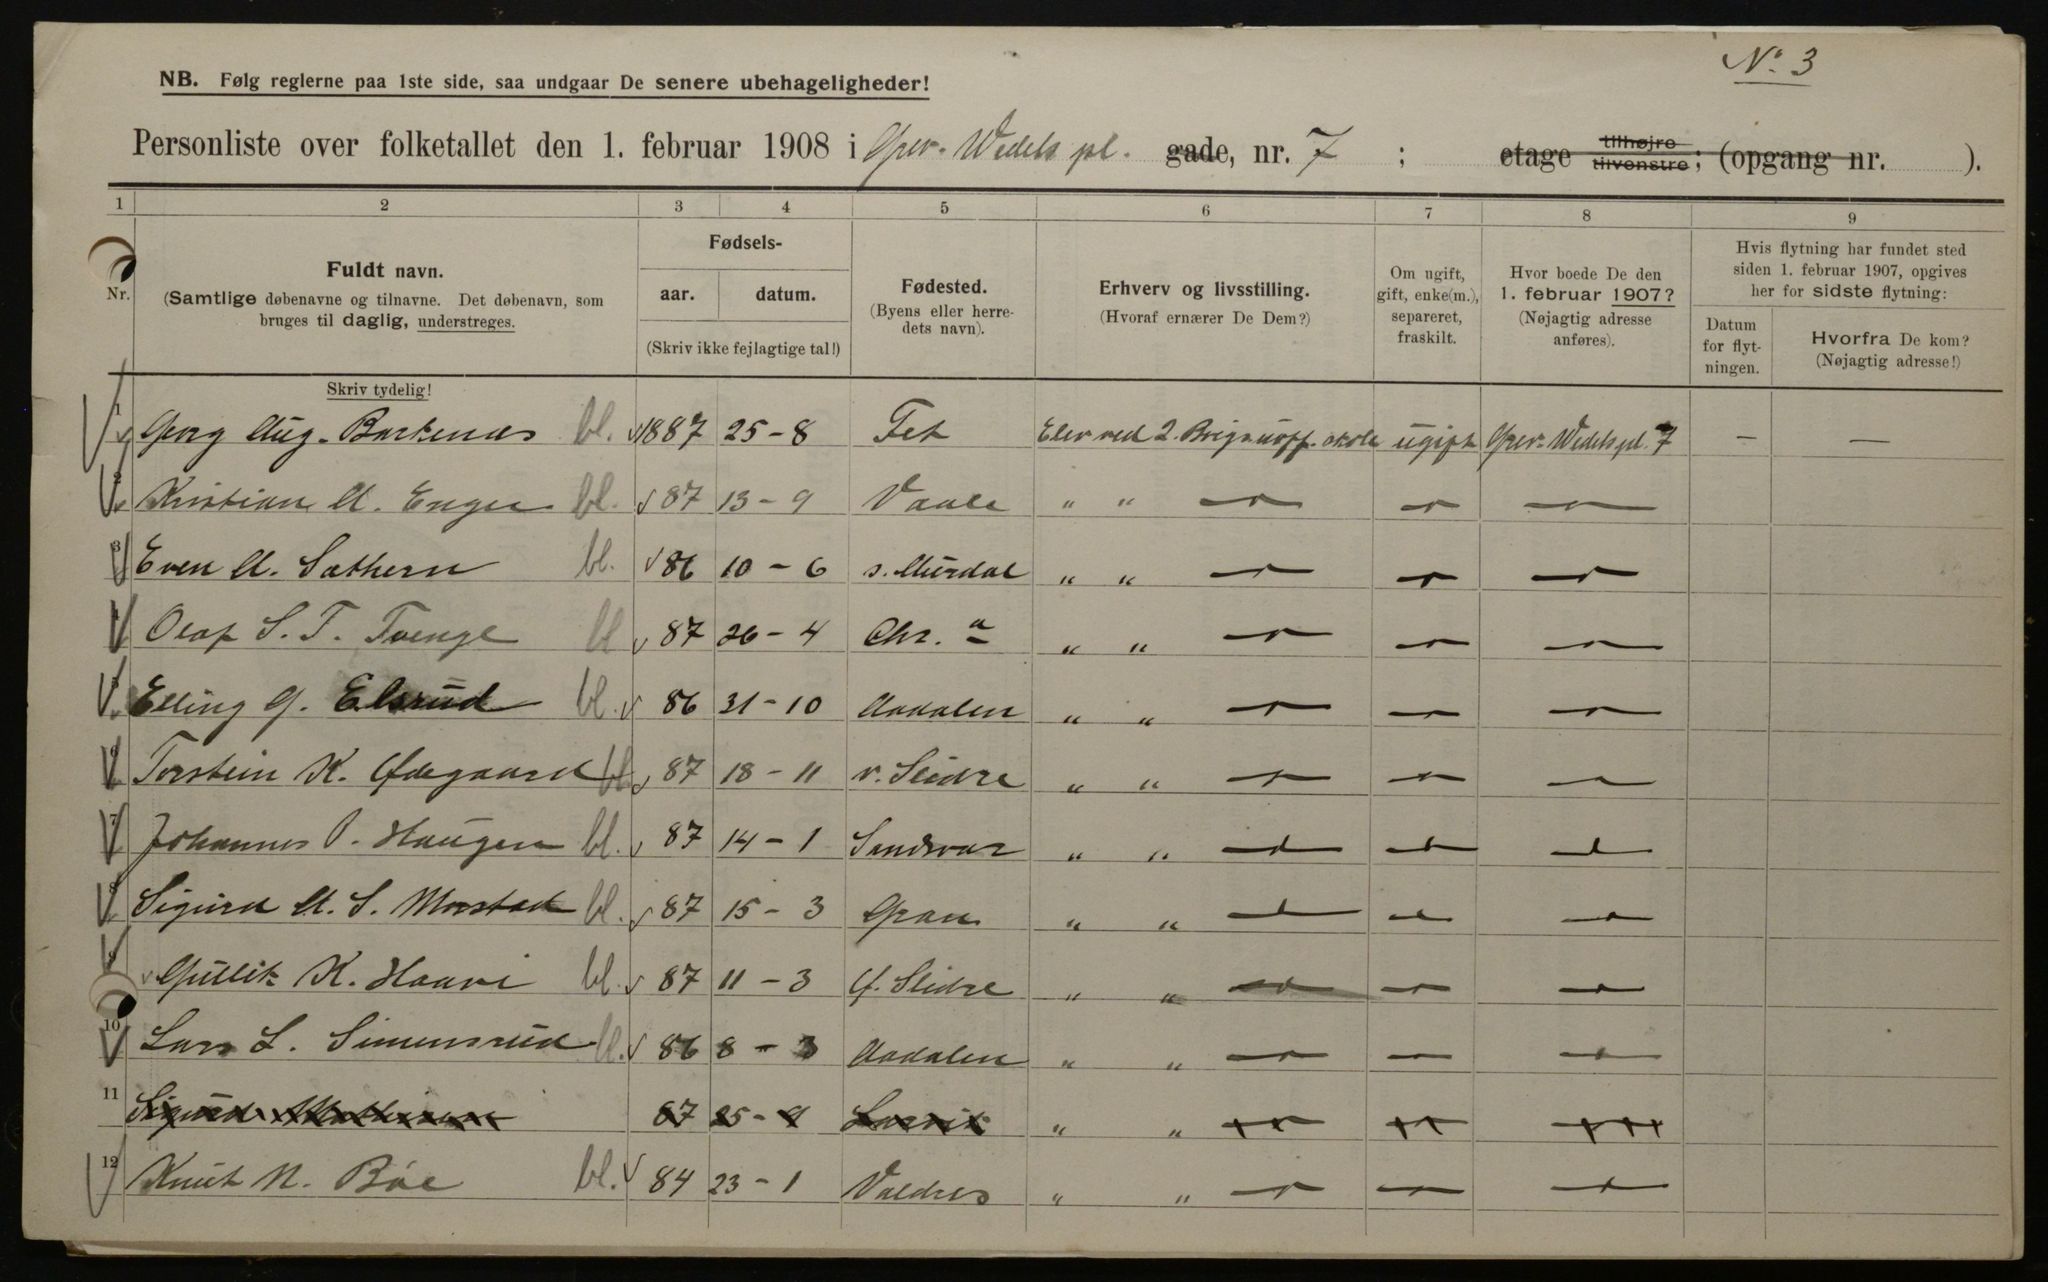 No. 3
NB. Følg reglerne paa 1ste side, saa undgaar De senere ubehageligheder!
Personliste over folketallet den 1. februar 1908 i Grev. Wedels pl. gade, nr. 7 ; etage tilhøjre tilvenstre; (opgang nr. ).
1 2 3 4 5 6 7 8 9
Nr.
Fuldt navn.
(Samtlige døbenavne og tilnavne. Det døbenavn, som
bruges til daglig, understreges.
Skriv tydelig!
Fødsels-
aar. datum.
(Skriv ikke fejlagtige tal!)
Fødested.
(Byens eller herre-
dets navn).
Erhverv og livsstilling.
(Hvoraf ernærer De Dem?)
Om ugift,
gift, enke(m.),
separeret,
fraskilt.
Hvor boede De den
1. februar 1907?
(Nøjagtig adresse
anføres).
Hvis flytning har fundet sted
siden 1. februar 1907, opgives
her for sidste flytning:
Datum
for flyt-
ningen.
Hvorfra De kom?
(Nøjagtig adresse!)
1 Georg Aug. Barkenæs bl. 1887 25-8 Fet Elev ved 2. Brig. uoff. skole ugift Grev. Wedels pl. 7 — —
2 Kristian A. Enger bl. 87 13-9 Vaale " "
3 Even A. Sæthern bl. 86 10-6 s. Aurdal " "
4 Olaf S. T. Tvenge bl 87 26-4 Chr. a " "
5 Elling G. Elsrud bl. 86 31-10 Aadalen " "
6 Torstein K. Ødegaard bl. 87 18-11 v. Slidre " "
7 Johannes P. Haugen bl. 87 14-1 Sandsvær " "
8 Sigurd A. S. Morstad bl. 87 15-3 Gran " "
9 Gullik K. Haavi bl. 87 11-3 Ø. Slidre " "
10 Lars L. Simensrud bl. 86 8-3 Aadalen " "
11 Sigurd 87 25-9 Larvik " "
12 Knut N. Bøe bl. 84 23-1 Valdres " "